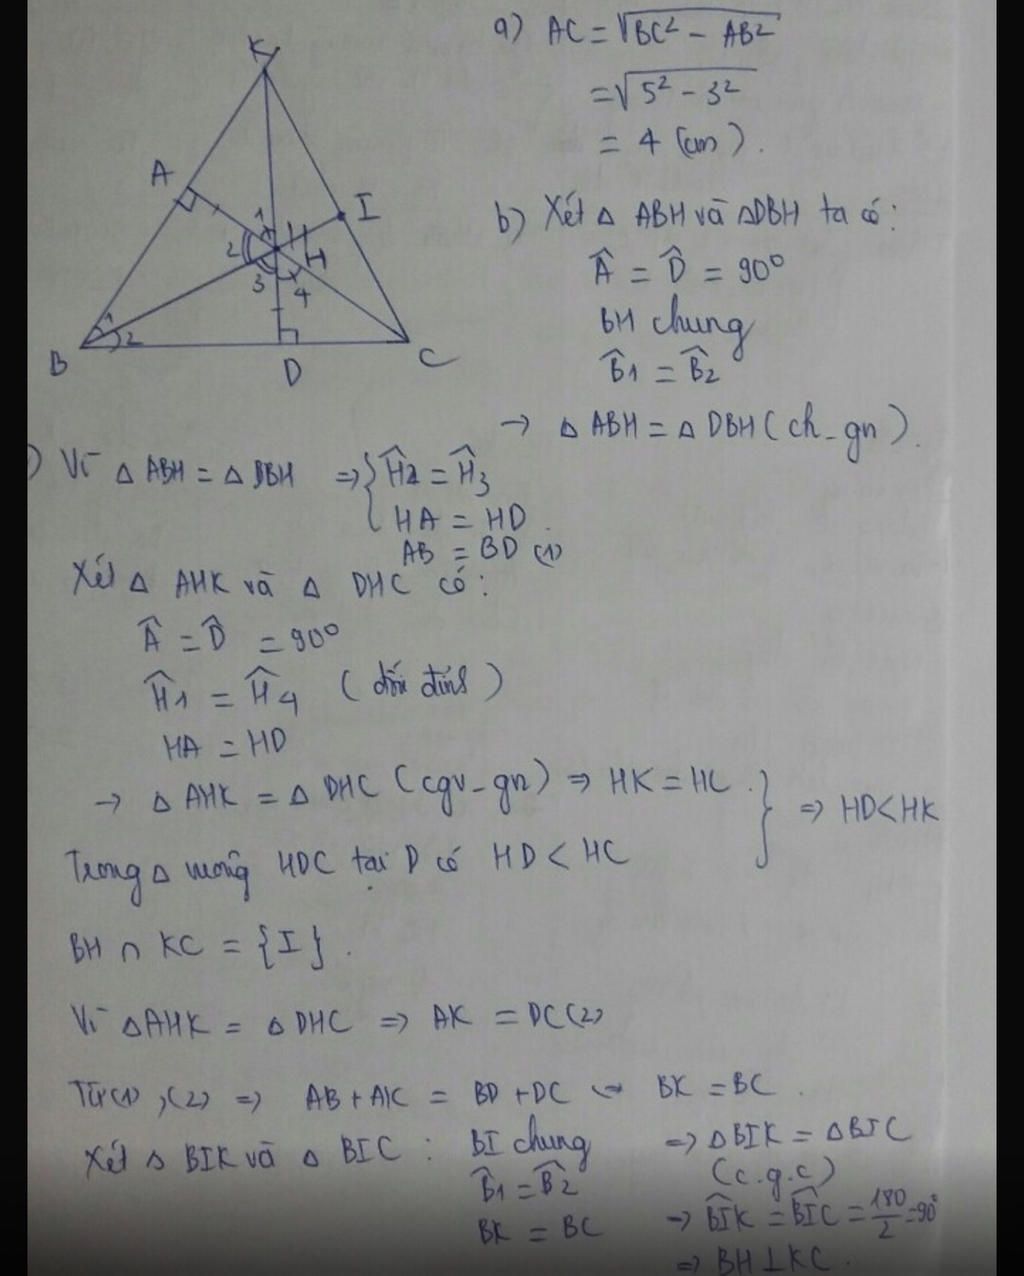 K
A
I
1
2
H
3
4
1
2
B
D
C
a) AC = √BC² - AB²
= √5² - 3²
= 4 (cm).
b) Xét Δ ABH và ΔDBH ta có:
Â = D̂ = 90°
BH chung
B̂1 = B̂2
→ Δ ABH = Δ DBH (ch-gn).
) Vì Δ ABH = Δ DBH => { Ĥ2 = Ĥ3
HA = HD.
AB = BD (1)
Xét Δ AHK và Δ DHC có:
Â = D̂ = 90°
Ĥ1 = Ĥ4 (đối đỉnh)
HA = HD
→ Δ AHK = Δ DHC (cgv-gn) => HK = HC. } => HD < HK
Trong Δ vuông HDC tại D có HD < HC
BH ∩ KC = {I}.
Vì ΔAHK = ΔDHC => AK = DC (2)
Từ (1), (2) => AB + AK = BD + DC <=> BK = BC.
Xét Δ BIK và Δ BIC : BI chung => ΔBIK = ΔBIC
B̂1 = B̂2 (c.g.c)
BK = BC => BÎK = BÎC = 180/2 = 90°
=> BH ⊥ KC.